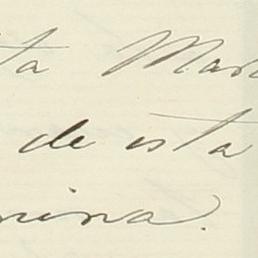 ta Mar
de esta
nina.